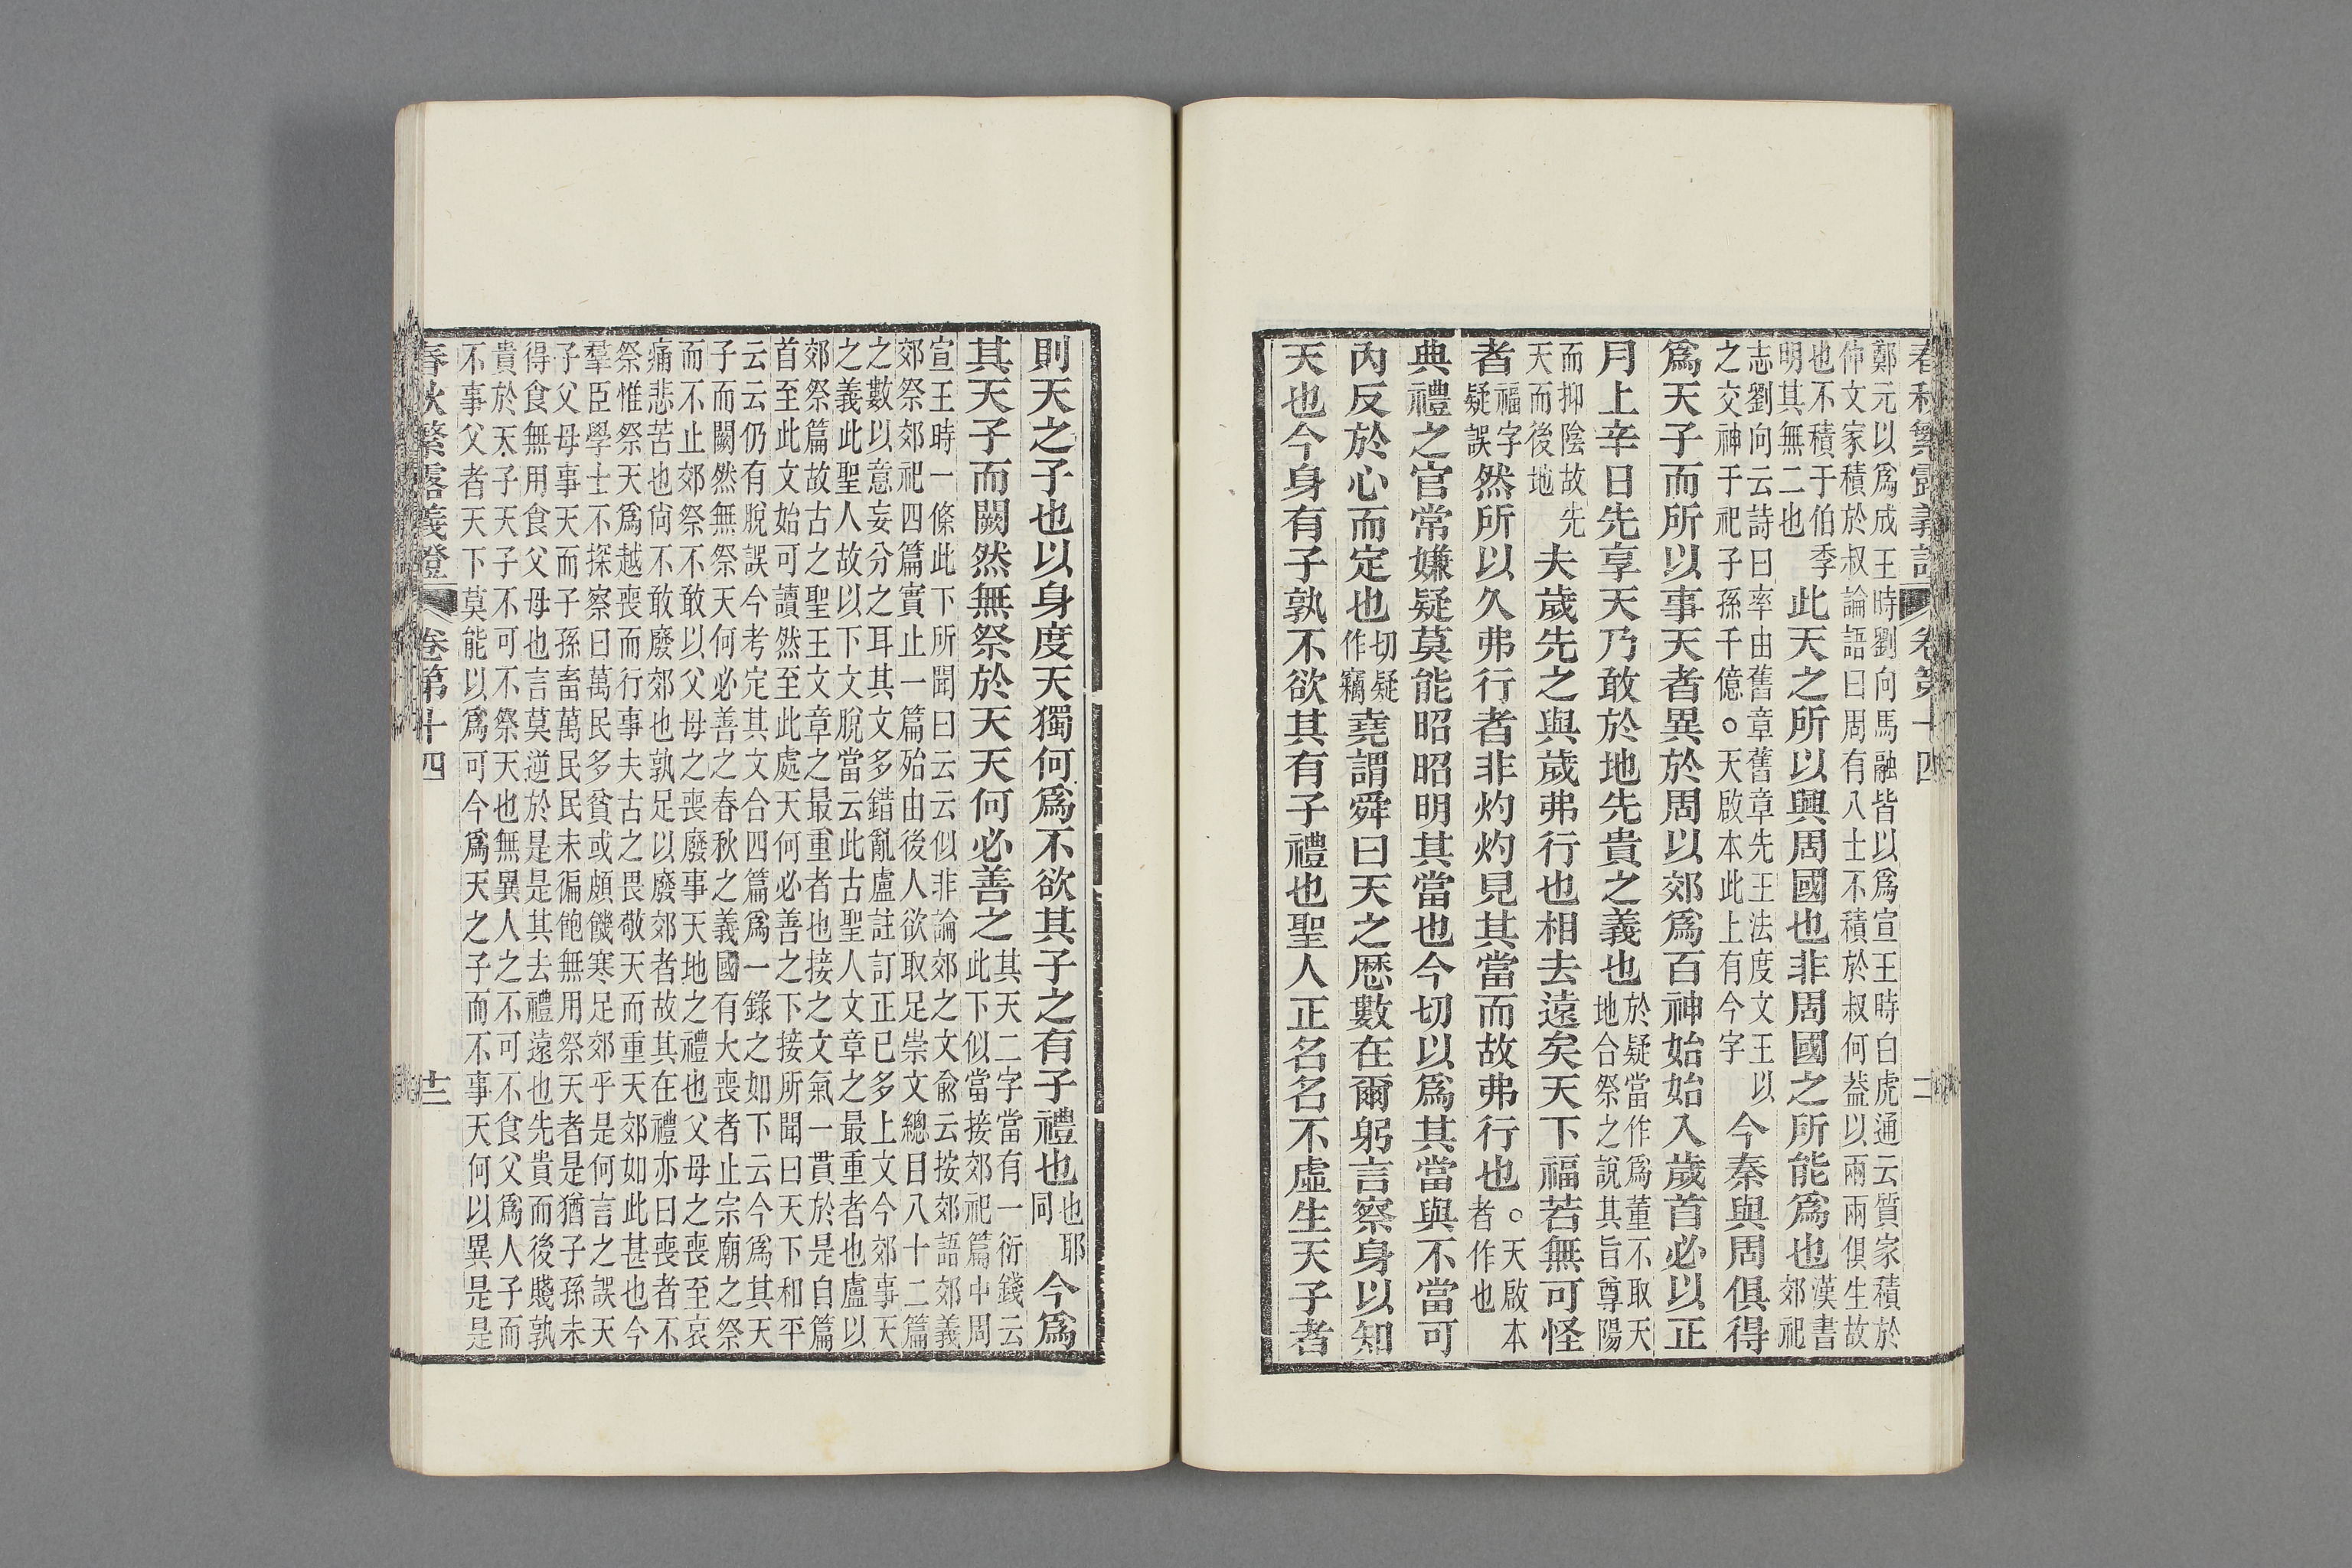 春秋繁露義證 卷第十四
鄭元以爲成王時劉向馬融皆以爲宣王時白虎通云質家積於
仲文家積於叔論語曰周有八士不積於叔何葢以兩兩俱生故
也不積于伯季
明其無二也
此天之所以興周國也非周國之所能爲也
漢書
郊祀
志劉向云詩曰率由舊章舊章先王法度文王以
之交神于祀子孫千億○天啟本此上有今字
今秦與周俱得
爲天子而所以事天者異於周以郊爲百神始始入歲首必以正
月上辛日先享天乃敢於地先貴之義也
於疑當作爲董不取天
地合祭之說其旨尊陽
而抑陰故先
天而後地
夫歲先之與歲弗行也相去遠矣天下福若無可怪
者
福字
疑誤
然所以久弗行者非灼灼見其當而故弗行也
○天啟本
者作也
典禮之官常嫌疑莫能昭昭明其當也今切以爲其當與不當可
內反於心而定也
切疑
作竊
堯謂舜曰天之厯數在爾躬言察身以知
天也今身有子孰不欲其有子禮也聖人正名名不虛生天子者
則天之子也以身度天獨何爲不欲其子之有子禮也
也耶
同
今爲
其天子而闕然無祭於天天何必善之
其天二字當有一衍錢云
此下似當接郊祀篇中周
宣王時一條此下所聞曰云云似非論郊之文兪云按郊語郊義
郊祭郊祀四篇實止一篇殆由後人欲取足崇文總目八十二篇
之數以意妄分之耳其文多錯亂盧註訂正已多上文今郊事天
之義此聖人故以下文脫當云此古聖人文章之最重者也盧以
郊祭篇故古之聖王文章之最重者也接之文氣一貫於是自篇
首至此文始可讀然至此處天何必善之下接所聞曰天下和平
云云仍有脫誤今考定其文合四篇爲一錄之如下云今爲其天
子而闕然無祭天何必善之春秋之義國有大喪者止宗廟之祭
而不止郊祭不敢以父母之喪廢事天地之禮也父母之喪至哀
痛悲苦也尙不敢廢郊也孰足以廢郊者故其在禮亦曰喪者不
祭惟祭天爲越喪而行事夫古之畏敬天而重天郊如此甚也今
羣臣學士不探察曰萬民多貧或頗饑寒足郊乎是何言之誤天
子父母事天而子孫畜萬民民未徧飽無用祭天者是猶子孫未
得食無用食父母也言莫逆於是是其去禮遠也先貴而後賤孰
貴於天子天子不可不祭天也無異人之不可不食父爲人子而
不事父者天下莫能以爲可今爲天之子而不事天何以異是是
春秋繁露義證 卷第十四 十三